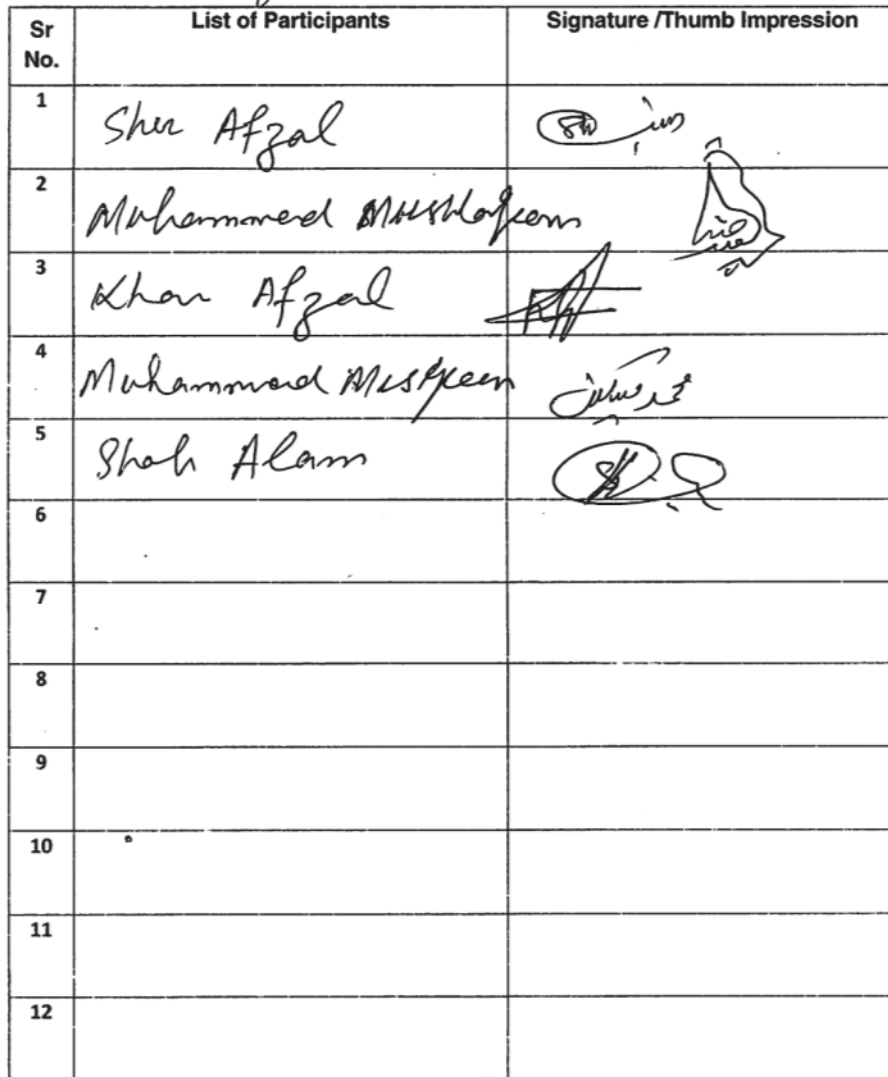 Sr No. List of Participants Signature /Thumb Impression
1 Sher Afzal
2 Muhammad
3 Khan Afzal
4 Muhammad Miskeen محمد مسکین
5 Shah Alam
6
7
8
9
10
11
12